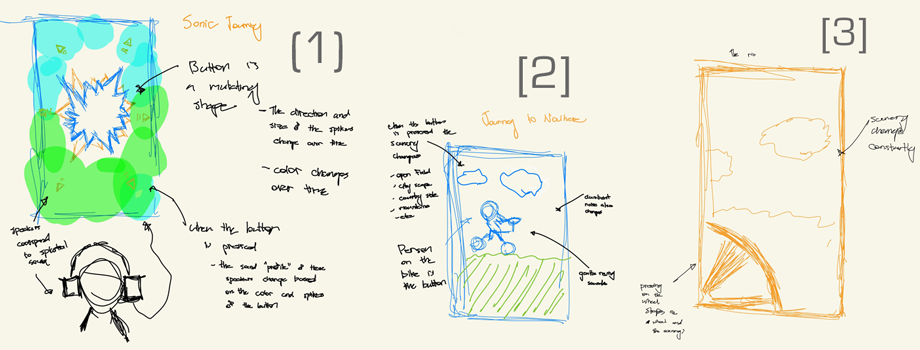 Sonic Journey
(1)
Button is
a mutating
shape
- The direction and
sizes of the spikes
change over time
- color changes
over time
when the button
is pressed
- the sound "profile" of these
speakers change based
on the color and spikes
of the button
speakers
correspond
to spatial
sound
[2]
Journey to Nowhere
when the button
is pressed the
scenery
changes
- open field
- city scape
- country side
- mountains
- etc
Person
on the
bike is
the button
ambient
noise also
changes
sounds
[3]
The
scenery
changes
constantly
pressing
on the
wheel
stops the
wheel and
the scenery